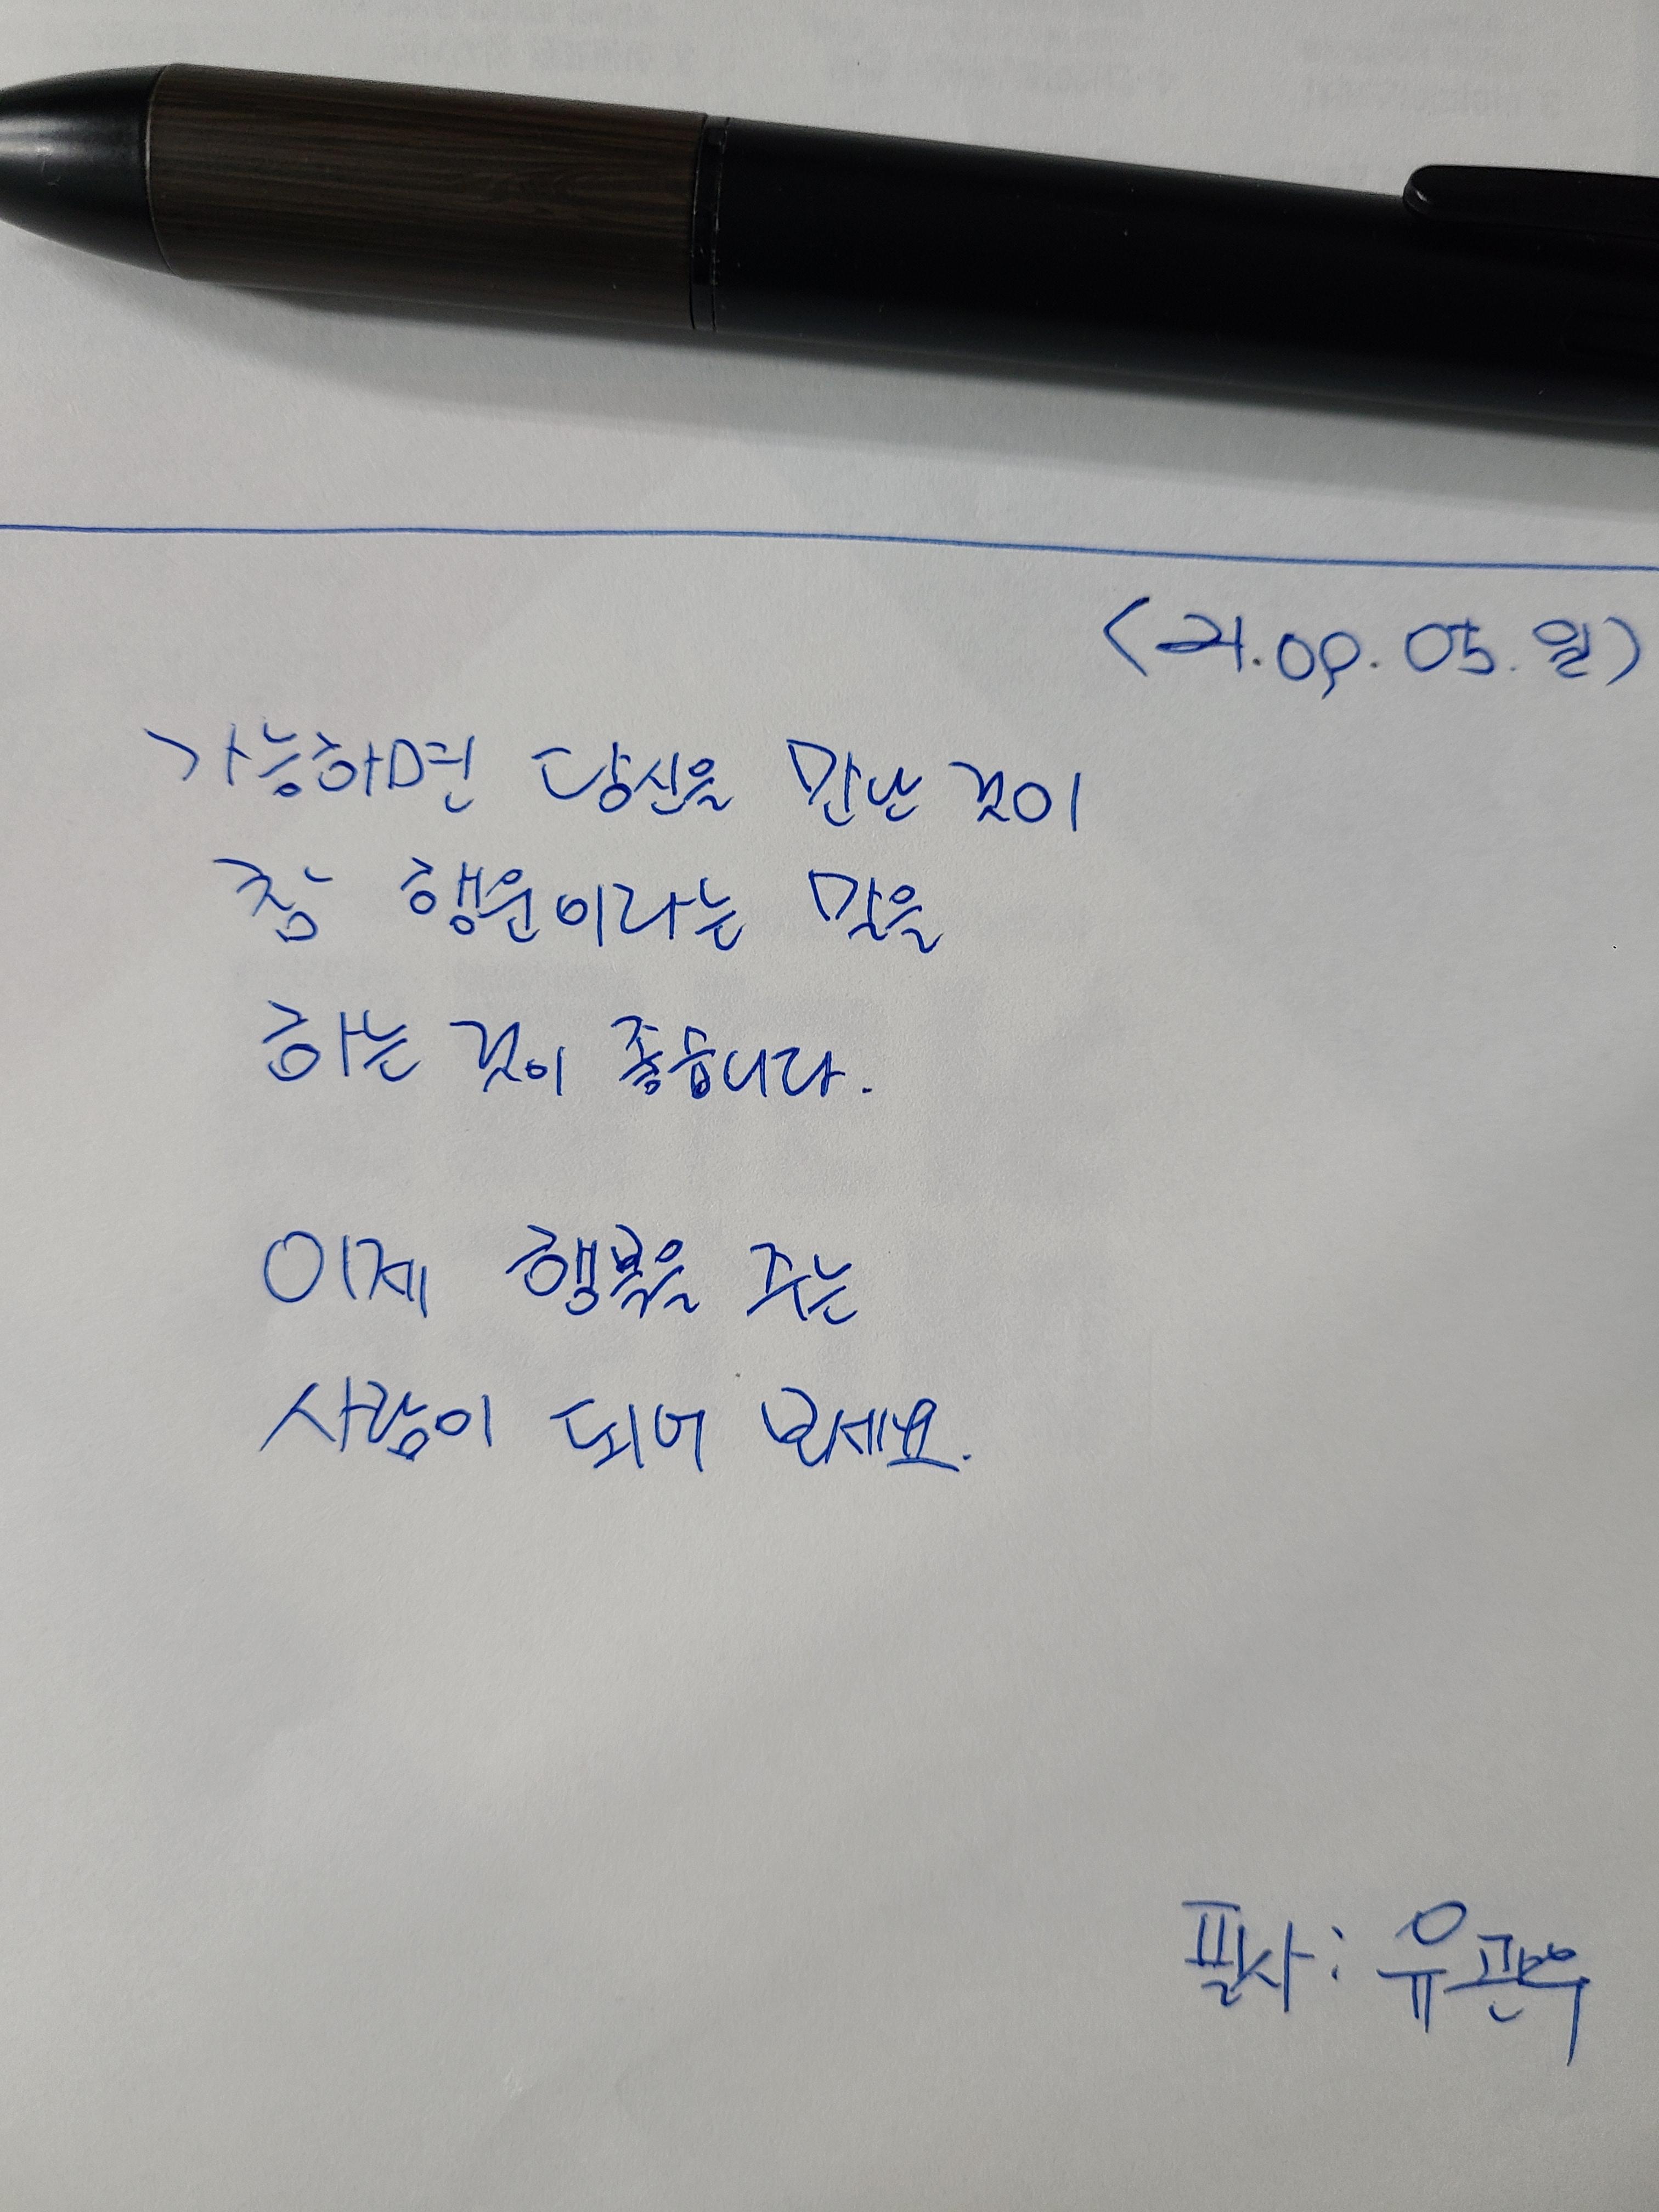 <21.09.05.일>
가능하면 당신을 만난 것이
참 행운이라는 말을
하는 것이 좋습니다.
이제 행복을 주는
사람이 되어 보세요.
필사: 유관